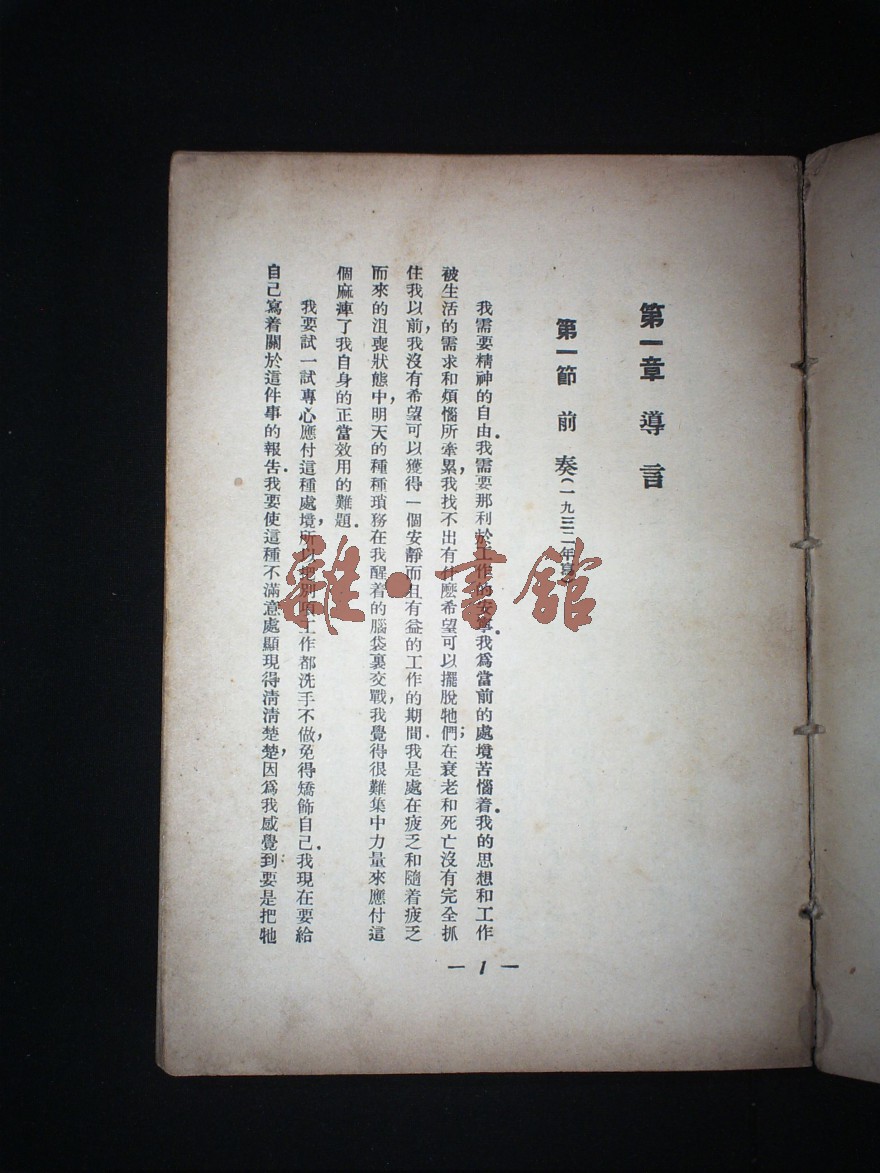 第一章 導言
第一節 前奏(一九三二年寫)
我需要精神的自由.我需要那利於工作的安寧.我爲當前的處境苦惱着.我的思想和工作
被生活的需求和煩惱所牽累,我找不出有什麽希望可以擺脫牠們;在衰老和死亡沒有完全抓
住我以前,我沒有希望可以獲得一個安靜而且有益的工作的期間.我是處在疲乏和隨着疲乏
而來的沮喪狀態中,明天的種種瑣務在我醒着的腦袋裏交戰,我覺得很難集中力量來應付這
個麻痺了我自身的正當效用的難題.
我要試一試專心應付這種處境,所以把別項工作都洗手不做,免得矯飾自己.我現在要給
自己寫着關於這件事的報告.我要使這種不滿意處顯現得清清楚楚,因爲我感覺到:要是把牠
— 1 —
雜·書館